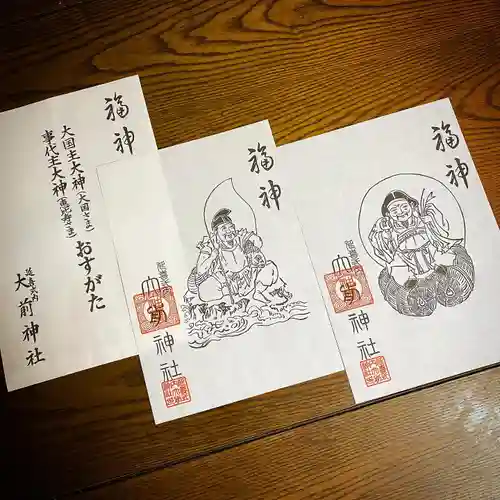 福神
大国主大神(大国さま)
事代主大神(恵比寿さま)
おすがた
延喜式内
大前神社
福神
延喜式内
大前
神社
福神
延喜式内
大前
神社